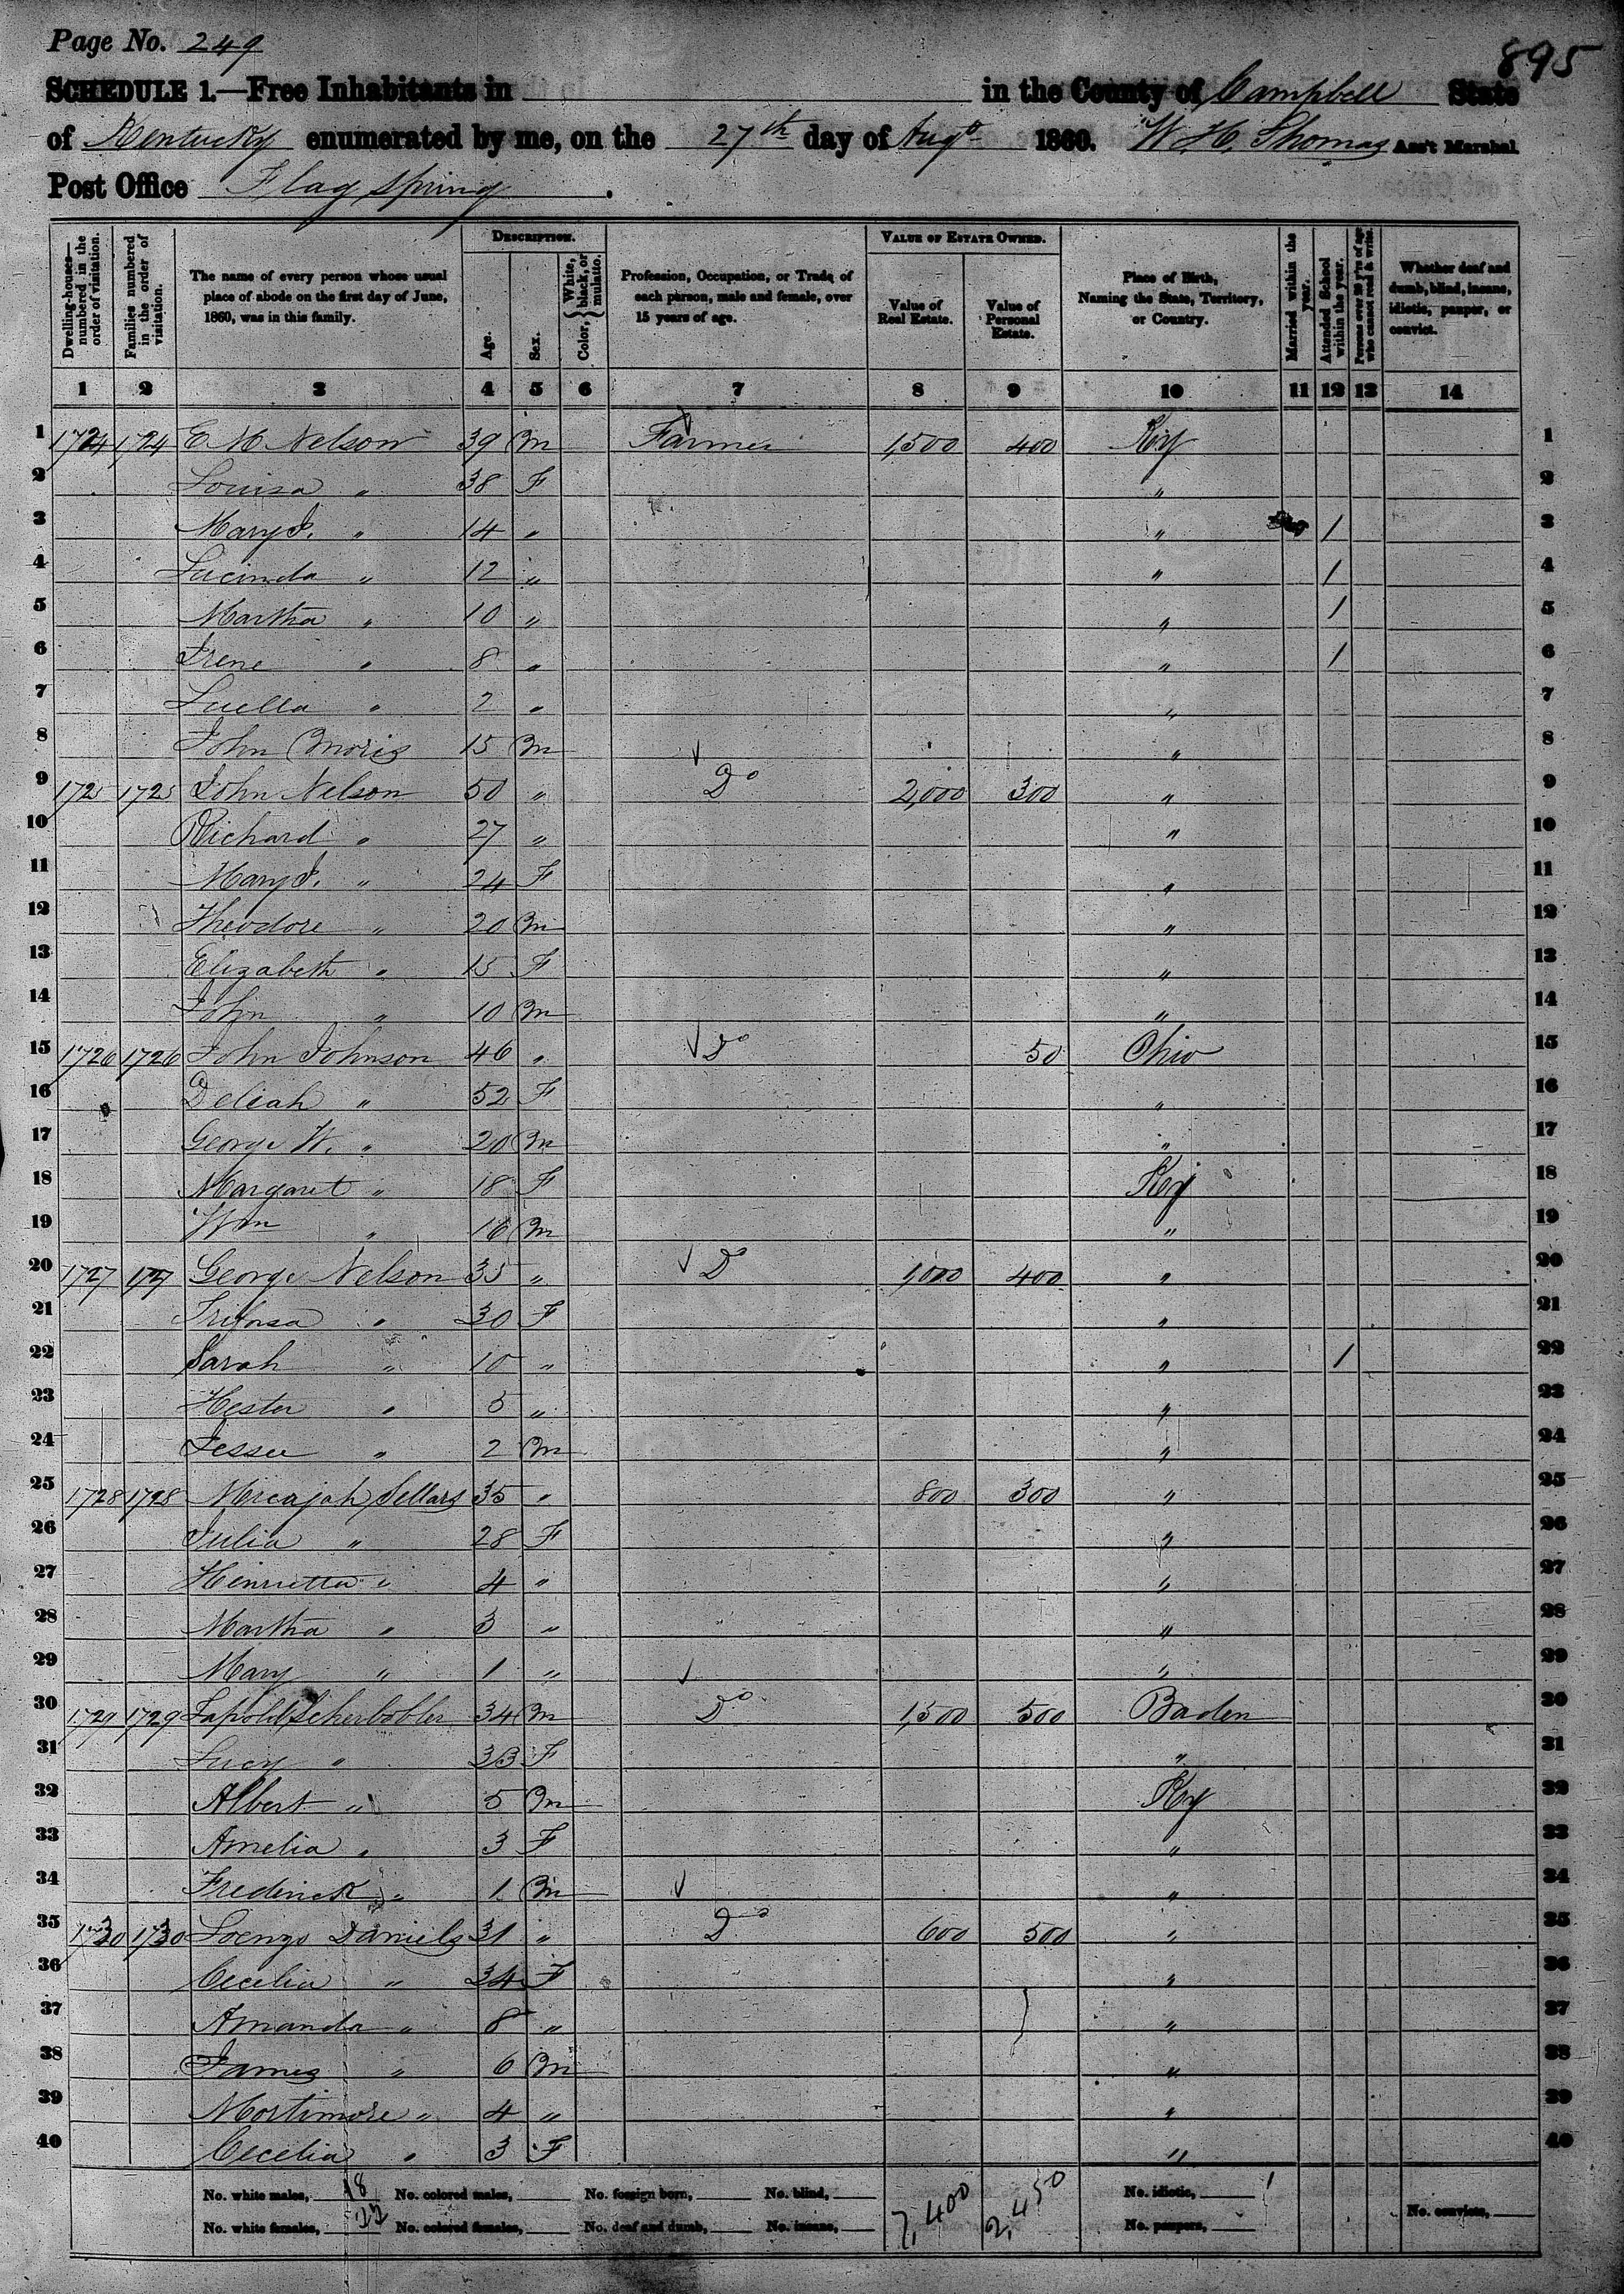 Page No. 249
895
SCHEDULE 1.—Free Inhabitants in in the County of Campbell State
of Kentucky enumerated by me, on the 27th day of Augt 1860. W. H. Thomas Ass't Marshal.
Post Office Flag Spring.
DESCRIPTION. VALUE OF ESTATE OWNED.
Dwelling-houses— numbered in the order of visitation. Families numbered in the order of visitation. The name of every person whose usual place of abode on the first day of June, 1860, was in this family. Age. Sex. Color, { White, black, or mulatto. Profession, Occupation, or Trade of each person, male and female, over 15 years of age. Value of Real Estate. Value of Personal Estate. Place of Birth, Naming the State, Territory, or Country. Married within the year. Attended School within the year. Persons over 20 y'rs of age who cannot read & write. Whether deaf and dumb, blind, insane, idiotic, pauper, or convict.
1 2 3 4 5 6 7 8 9 10 11 12 13 14
1 1724 1724 E M Nelson 39 M Farmer 1,500 400 Ky 1
2 Louisa " 38 F " 2
3 Mary J. " 14 " " / 3
4 Lucinda " 12 " " / 4
5 Martha " 10 " " / 5
6 Irene " 8 " " / 6
7 Luella " 2 " " 7
8 John Moris 15 M " 8
9 1725 1725 John Nelson 50 " Do 2,000 300 " 9
10 Richard " 27 " " 10
11 Mary J. " 24 F " 11
12 Theodore " 20 M " 12
13 Elizabeth " 15 F " 13
14 John " 10 M " 14
15 1726 1726 John Johnson 46 " Do 50 Ohio 15
16 Deliah " 52 F " 16
17 George W. " 20 M " 17
18 Margaret " 18 F Ky 18
19 Wm " 16 M " 19
20 1727 1727 George Nelson 35 " Do 1,000 400 " 20
21 " 30 F " 21
22 Sarah " 10 " " / 22
23 Hester " 5 " " 23
24 Jessee " 2 M " 24
25 1728 1728 Micajah Sellars 35 " 800 300 " 25
26 Julia " 28 F " 26
27 Henrietta " 4 " " 27
28 Martha " 3 " " 28
29 Mary " 1 " " 29
30 1729 1729 34 M Do 1,500 500 Baden 30
31 Lucy " 33 F " 31
32 Albert " 5 M Ky 32
33 Amelia " 3 F " 33
34 Frederick " 1 M " 34
35 1730 1730 Loenzo Daniels 31 " Do 600 500 " 35
36 Cecelia " 34 F " 36
37 Amanda " 8 " " 37
38 James " 6 M " 38
39 Mortimore " 4 " " 39
40 Cecelia " 3 F " 40
No. white males, 18 No. colored males, No. foreign born, No. blind, 7,400 2,450 No. idiotic,
No. white females, 22 No. colored females, No. deaf and dumb, No. insane, No. paupers, No. convicts,